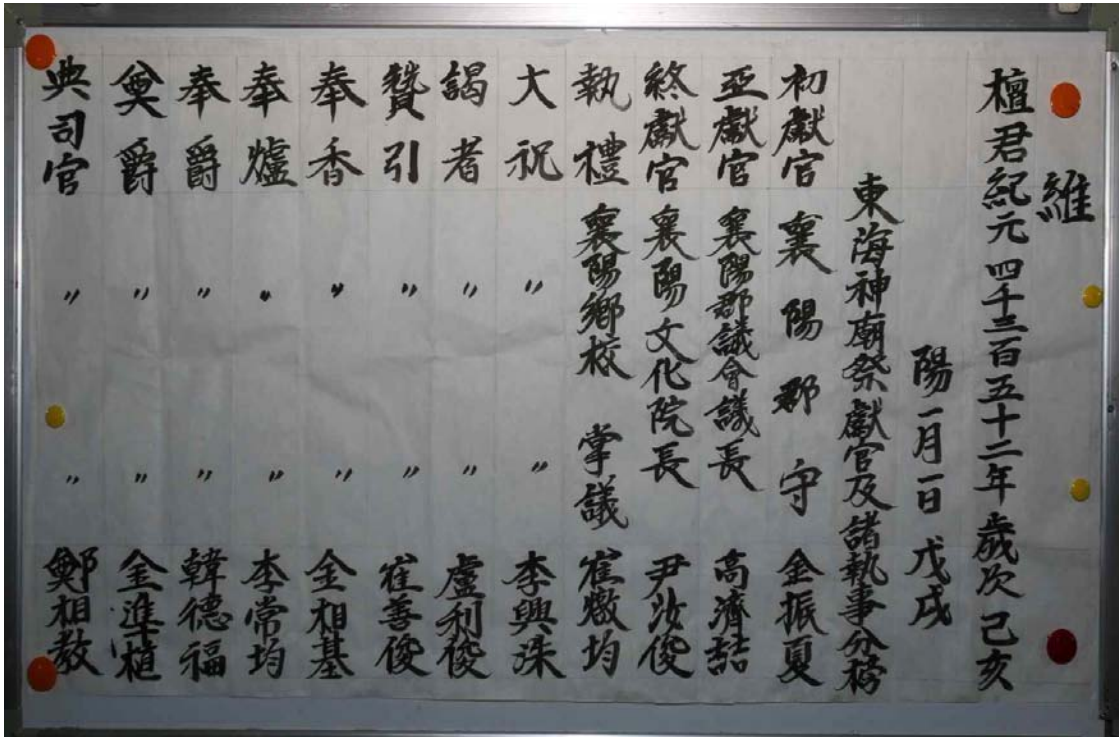 維
檀君紀元四千三百五十二年 歲次 己亥
陽 一月一日 戊戌
東海神廟祭獻官及諸執事分榜
初獻官 襄陽郡守 金振夏
亞獻官 襄陽郡議會議長 高濟喆
終獻官 襄陽文化院長 尹汝俊
執禮 襄陽鄉校 掌議 崔燉均
大祝 〃 〃 李興洙
謁者 〃 〃 盧利俊
贊引 〃 〃 崔善俊
奉香 〃 〃 金相基
奉爐 〃 〃 李常均
奉爵 〃 〃 韓德福
奠爵 〃 〃 金進植
典司官 〃 〃 鄭相教